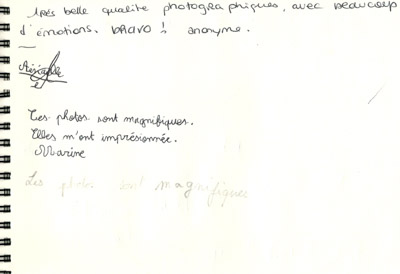 très belle qualité photographiques, avec beaucoup
d'émotions. bravo ! anonyme.
Les photos sont magnifiques.
Elles m'ont imprésionnée.
Marine
Les photos sont magnifiques